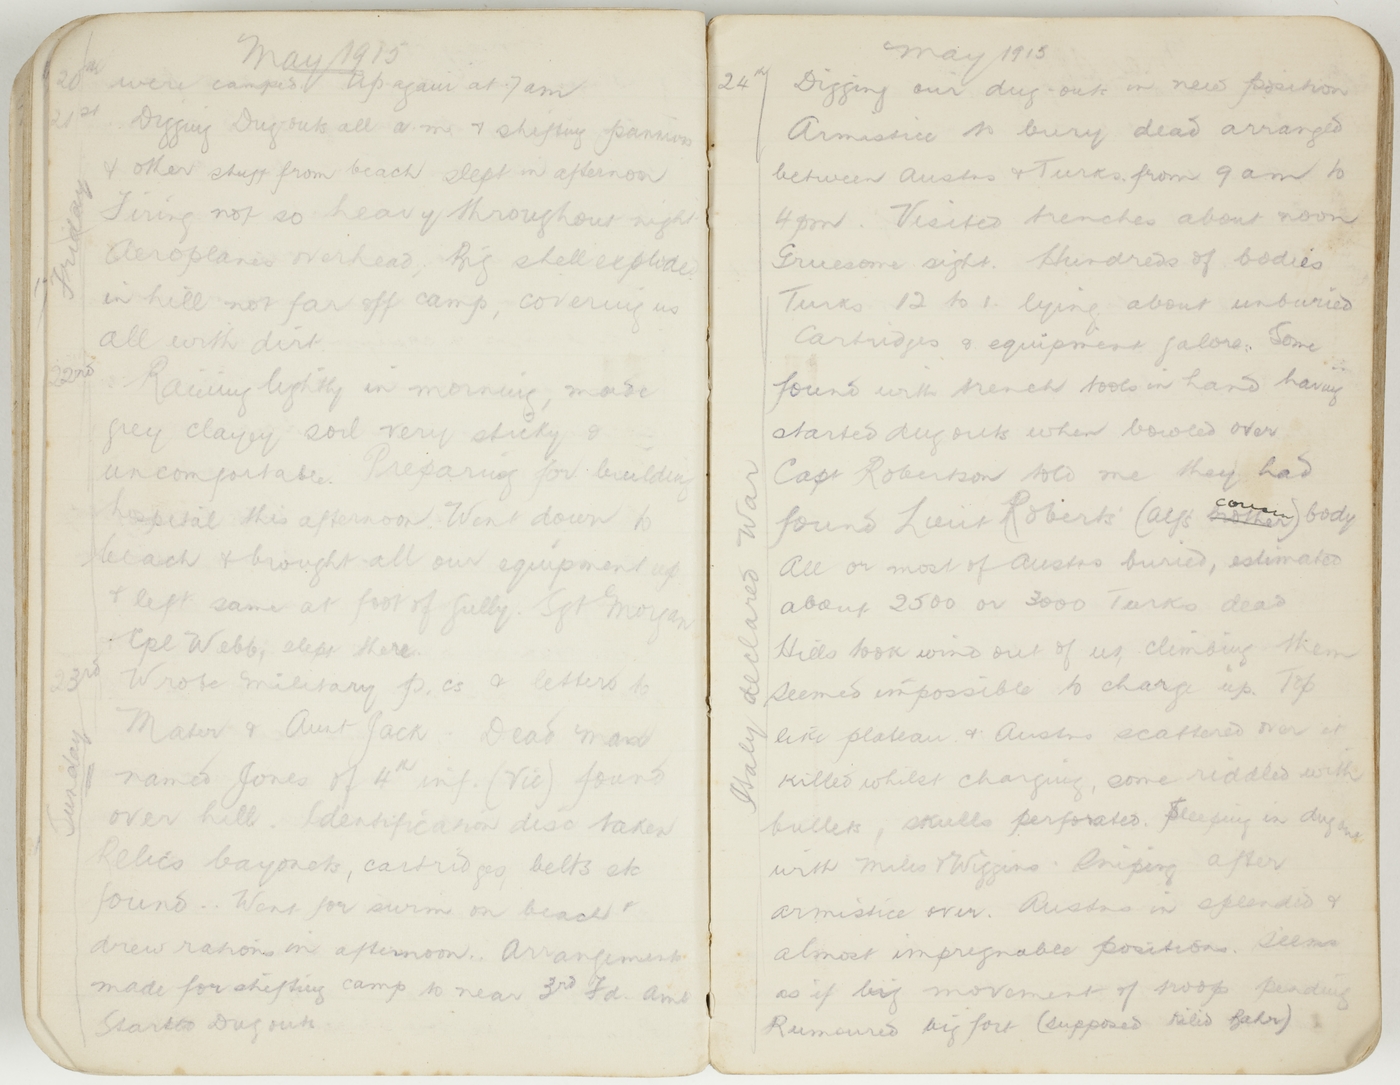 May 1915
20th were camped Up again at 7 am
21st Digging Dug outs all a m & shifting panniers
& other stuff from beach slept in afternoon
Friday
Firing not so heavy throughout night
Aeroplanes overhead, Big shell exploded
in hill not far off camp, covering us
all with dirt
22nd Raining lightly in morning, made
grey clayey soil very sticky &
uncomfortable. Preparing for building
hospital this afternoon. Went down to
beach & brought all our equipment up
& left same at foot of gully. Sgt Morgan
Cpl Webb, slept there.
23rd Wrote military p.cs & letters to
Sunday
Mater & Aunt Jack. Dead man
named Jones of 4th inf. (Vic) found
over hill. Identification disc taken
Relics bayonets, cartridges, belts etc
found.. Went for swim on beach &
drew rations in afternoon.. Arrangements
made for shifting camp to near 3rd Fd. Amb
Started Dug outs.
May 1915
24th Digging our dug-outs in new position
Armistice to bury dead arranged
between Austns & Turks from 9 am to
4 pm. Visited trenches about noon
Gruesome sight. Hundreds of bodies
Turks 12 to 1. lying about unburied
Cartridges & equipment galore. Some
found with trench tools in hand having
started dug outs when bowled over
Capt Robertson told me they had
found Lieut Roberts' (Alf's brother) cousin body
All or most of Austns buried, estimated
about 2500 or 3000 Turks dead
Italy declared War
Hills took wind out of us, climbing them
seemed impossible to charge up. Top
like plateau & Austns scattered over it
killed whilst charging, some riddled with
bullets, skulls perforated. Sleeping in dug out
with Miles & Wiggins. Sniping after
armistice over. Austns in splendid &
almost impregnable positions. Seems
as if big movement of troop pending
Rumoured big fort (supposed